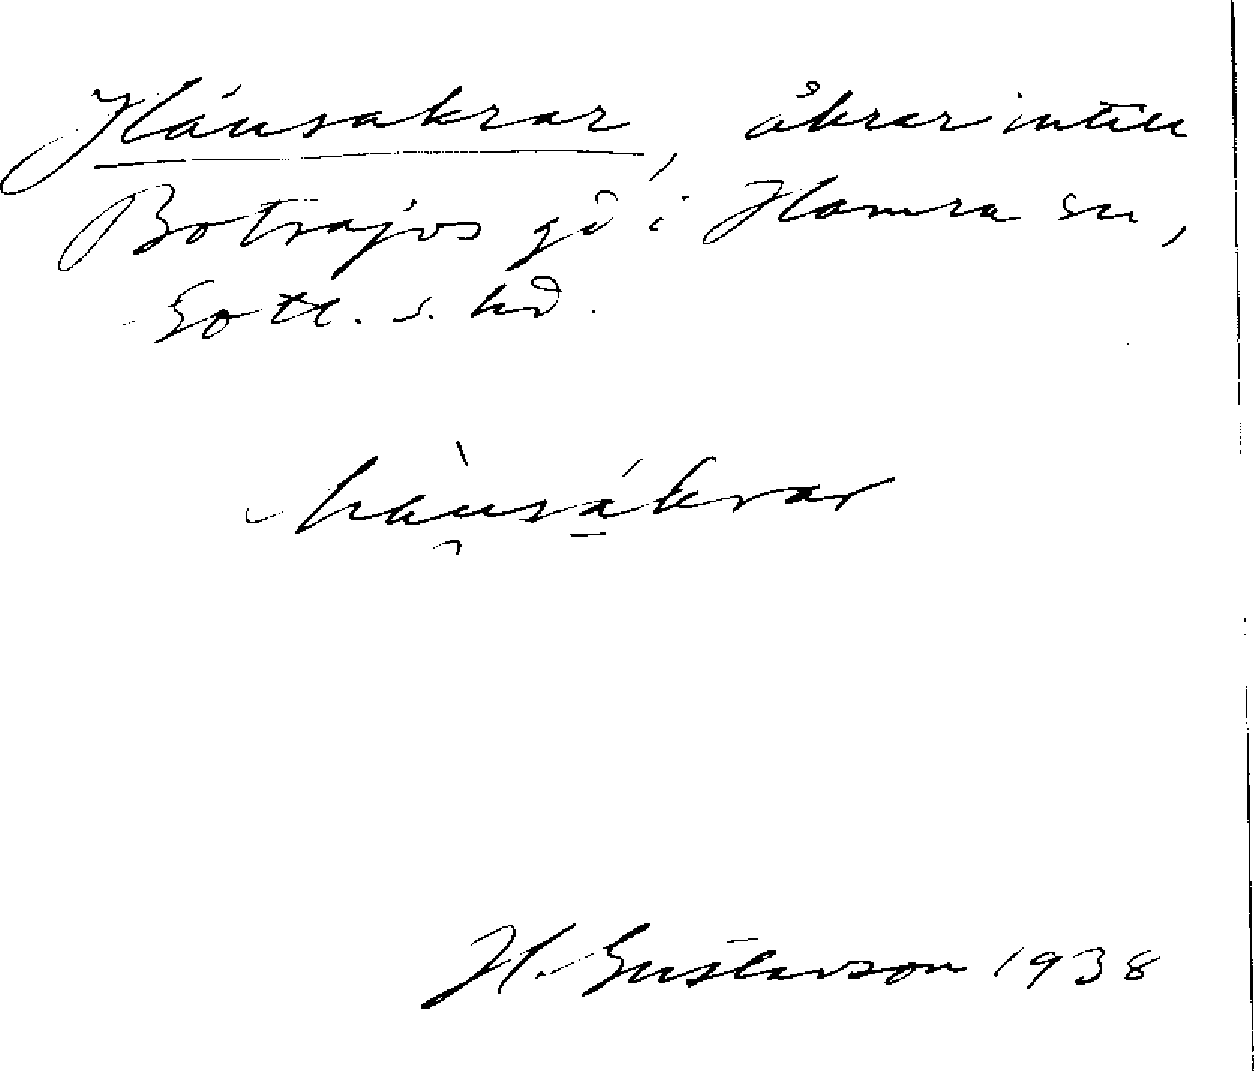 Hánsakrar, åkrar intill
Botvajvs gd i Hamra sn,
Gotl. s. hd.
hàusákrar
H. Gustavson 1938